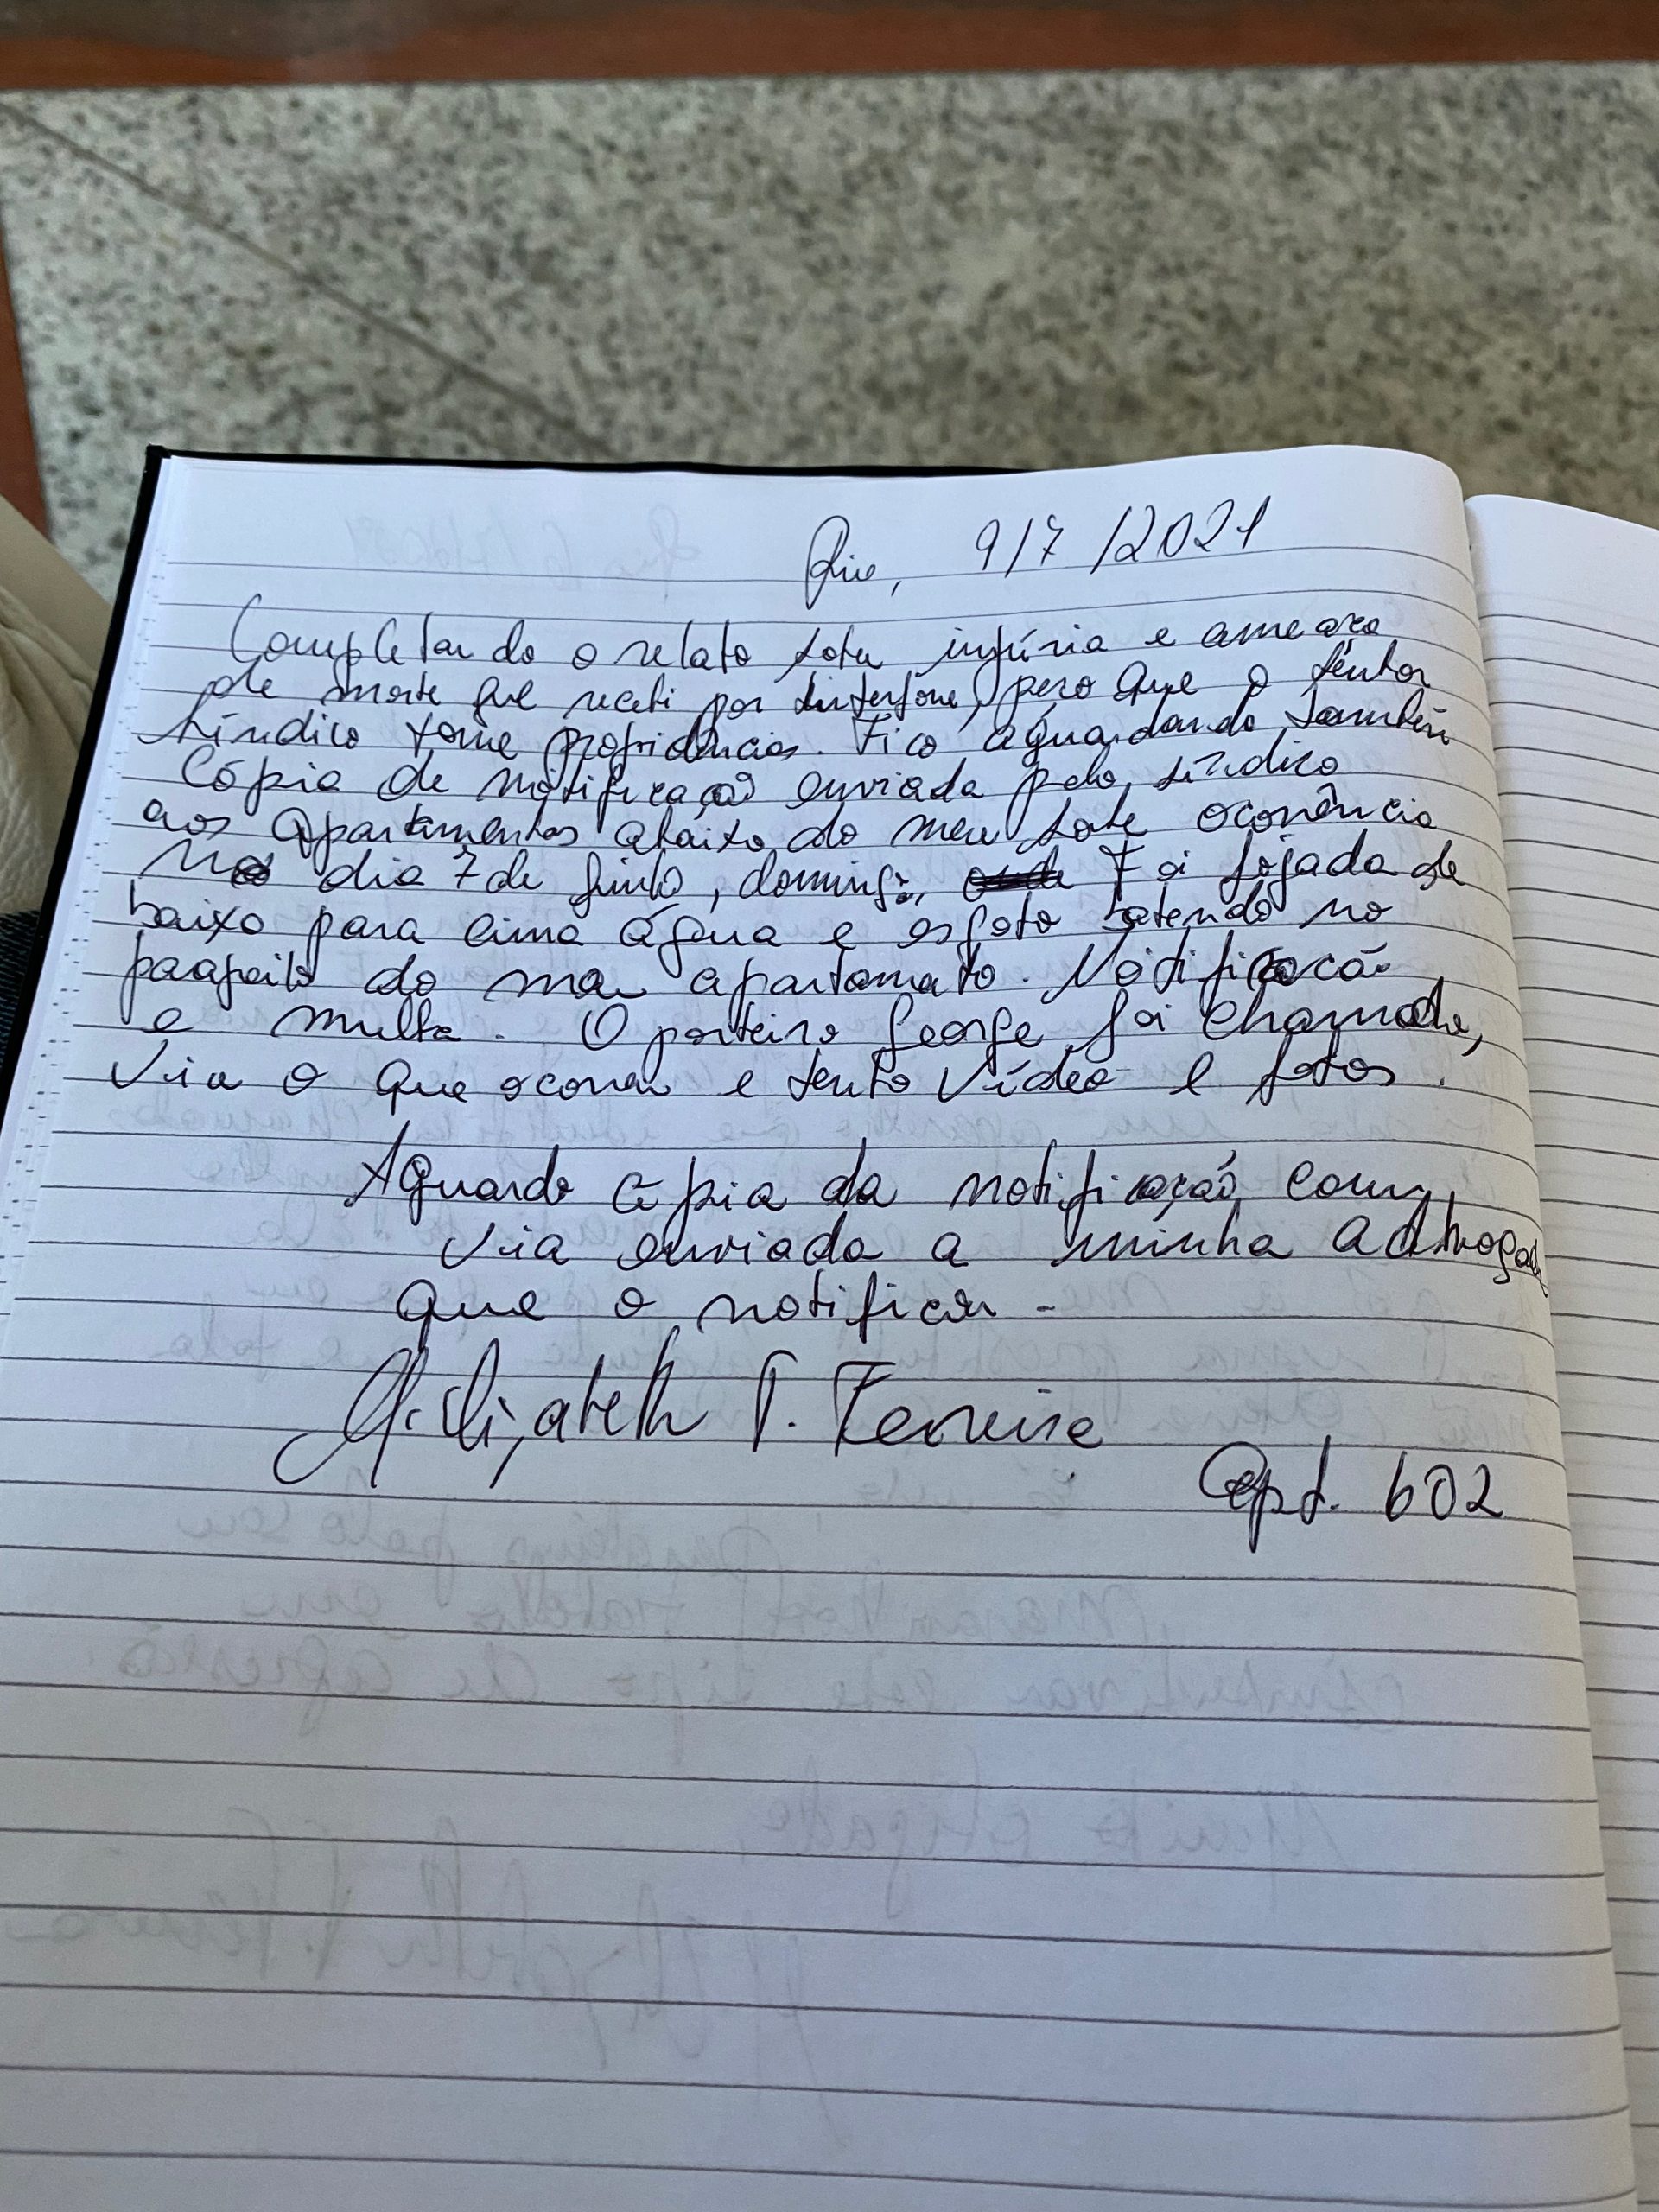 Rio, 9/7/2021
Completando o relato sobre injúria e ameaça
de morte que recebi por interfone, peço que o senhor
síndico tome profidências. Fico aguardando também
Cópia de notificação enviada pelo síndico
aos apartamentos abaixo do meu sobre ocorrência
No dia 7 de junho, domingo, Foi jogada de
baixo para cima água e esgoto batendo no
parapeito do meu apartamento. Notificação
e multa. O porteiro George foi chamado,
via o que ocorreu e tenho vídeo e fotos.
Aguardo cópia da notificação com
via enviada a minha advogada
que o notificou -
M. Elizabeth P. Ferreira
Apt. 602